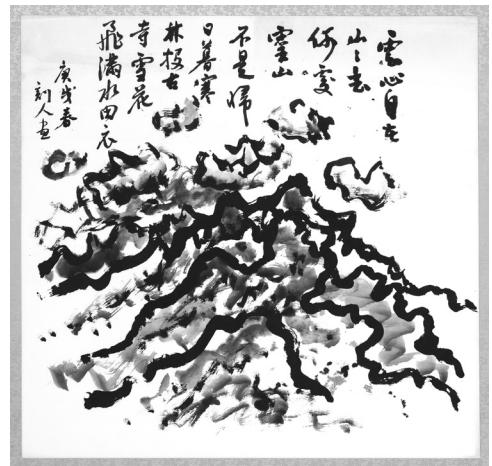 雲心自在
山々去
何處
靈山
不是歸
日暮寒
林投古
寺雪花
飛滿水田衣
庚戌春
刻人畫